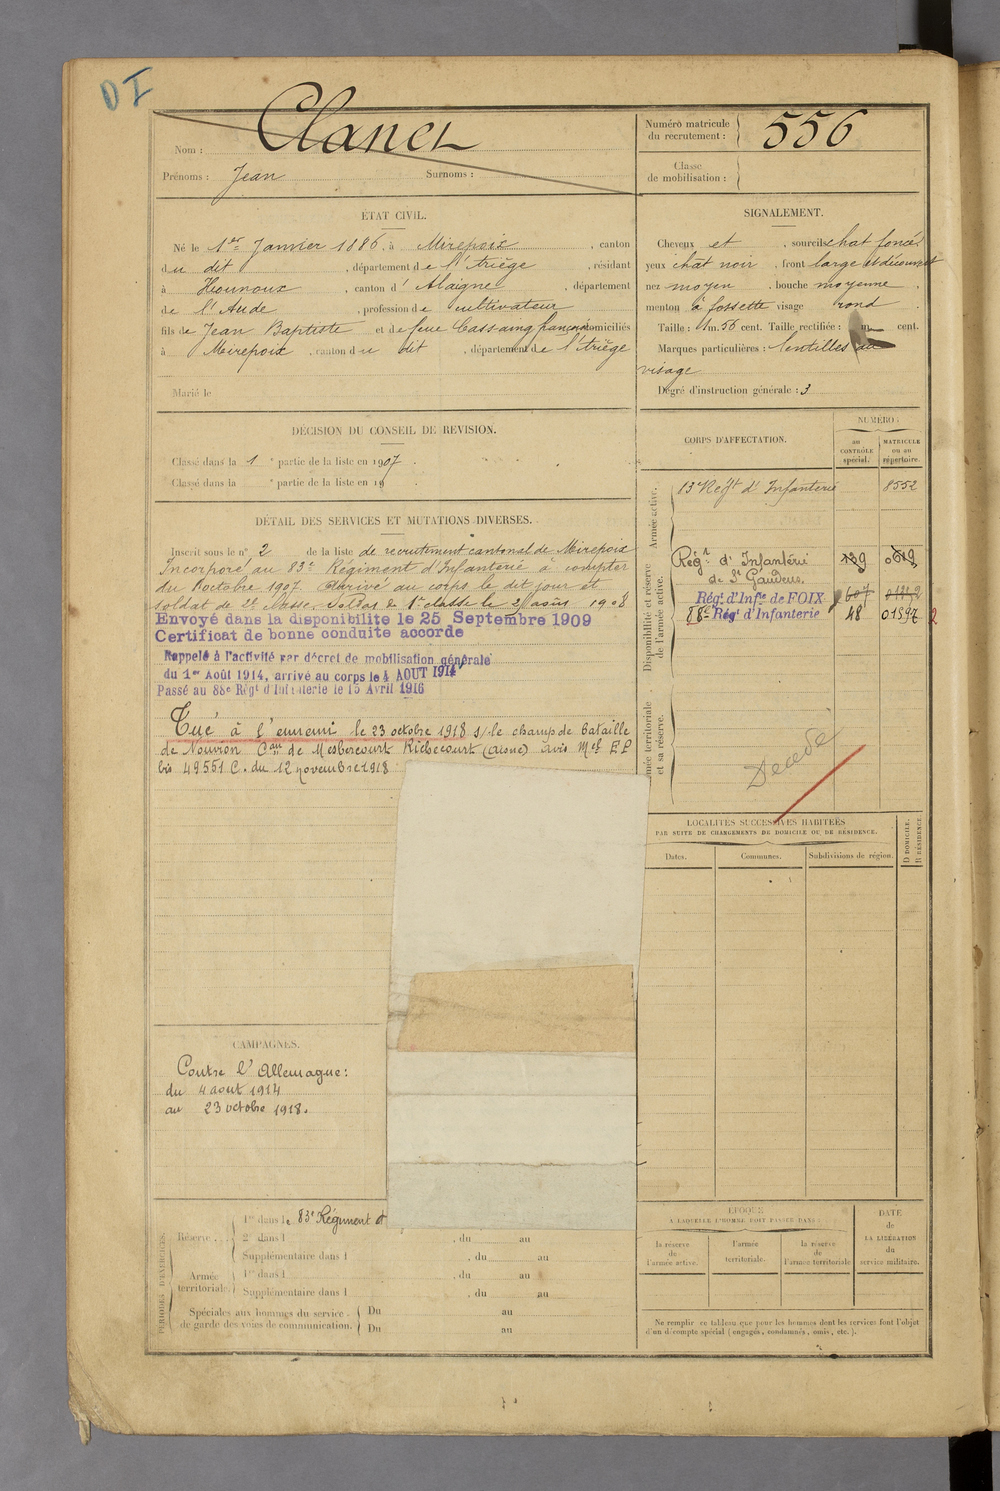 DI
Nom : Clanet
Prénoms : Jean Surnoms :
Numéro matricule
du recrutement : 556
Classe
de mobilisation :
ÉTAT CIVIL.
Né le 1er Janvier 1886, à Mirepoix, canton
du dit, département de l'Ariège, résidant
à Hounoux, canton d'Alaigne, département
de l'Aude, profession de cultivateur
fils de Jean Baptiste et de feue Cassaing françoise domiciliés
à Mirepoix, canton du dit, département de l'Ariège
Marié le
SIGNALEMENT.
Cheveux et, sourcils chat foncé
yeux chat noir, front large et découvert
nez moyen, bouche moyenne,
menton à fossette visage rond
Taille : 1m. 56 cent. Taille rectifiée : m. cent.
Marques particulières : lentilles au
visage
Degré d'instruction générale : 3
DÉCISION DU CONSEIL DE REVISION.
Classé dans la 1e partie de la liste en 1907.
Classé dans la e partie de la liste en 19 .
DÉTAIL DES SERVICES ET MUTATIONS DIVERSES.
Inscrit sous le n° 2 de la liste de recrutement cantonal de Mirepoix
Incorporé au 83e Régiment d'Infanterie à compter
du 8 octobre 1907. Arrivé au corps le dit jour et
soldat de 2e classe. Soldat de 1e classe le 21 août 1908
Envoyé dans la disponibilité le 25 Septembre 1909
Certificat de bonne conduite accordé
Rappelé à l'activité par décret de mobilisation générale
du 1er Août 1914, arrivé au corps le 4 AOUT 1914
Passé au 88e Régt d'Infanterie le 15 Avril 1916
Tué à l'ennemi le 23 octobre 1918 s/ le champ de bataille
de Nouvion Can de Mesbrecourt Richecourt (Aisne) avis Mel EP
bis 49551 C. du 12 novembre 1918
CORPS D'AFFECTATION.
NUMÉRO :
au
CONTRÔLE
spécial.
MATRICULE
ou au
répertoire.
Armée active.
83e Régt d'Infanterie 8552
Disponibilité et réserve
de l'armée active.
Régt d'Infanterie
de St Gaudens. 139 0619
Régt d'Infie de FOIX 607
88e Régt d'Infanterie 48 01597 2
Armée territoriale
et sa réserve.
Décédé
LOCALITÉS SUCCESSIVES HABITÉES
PAR SUITE DE CHANGEMENTS DE DOMICILE OU DE RÉSIDENCE.
Dates. Communes. Subdivisions de région. D DOMICILE. R RÉSIDENCE.
CAMPAGNES.
Contre l'Allemagne :
du 4 aout 1914
au 23 octobre 1918.
PÉRIODES D'EXERCICES.
Réserve
1re dans le 83e Régiment d
2e dans l , du au
Supplémentaire dans l , du au
Armée
territoriale.
1re dans l , du au
Supplémentaire dans l , du au
Spéciales aux hommes du service
de garde des voies de communication.
Du au
Du au
ÉPOQUE
A LAQUELLE L'HOMME DOIT PASSER DANS :
la réserve
de
l'armée active.
l'armée
territoriale.
la réserve
de
l'armée territoriale
DATE
de
LA LIBÉRATION
du
service militaire.
Ne remplir ce tableau que pour les hommes dont les services font l'objet
d'un décompte spécial (engagés, condamnés, omis, etc.).